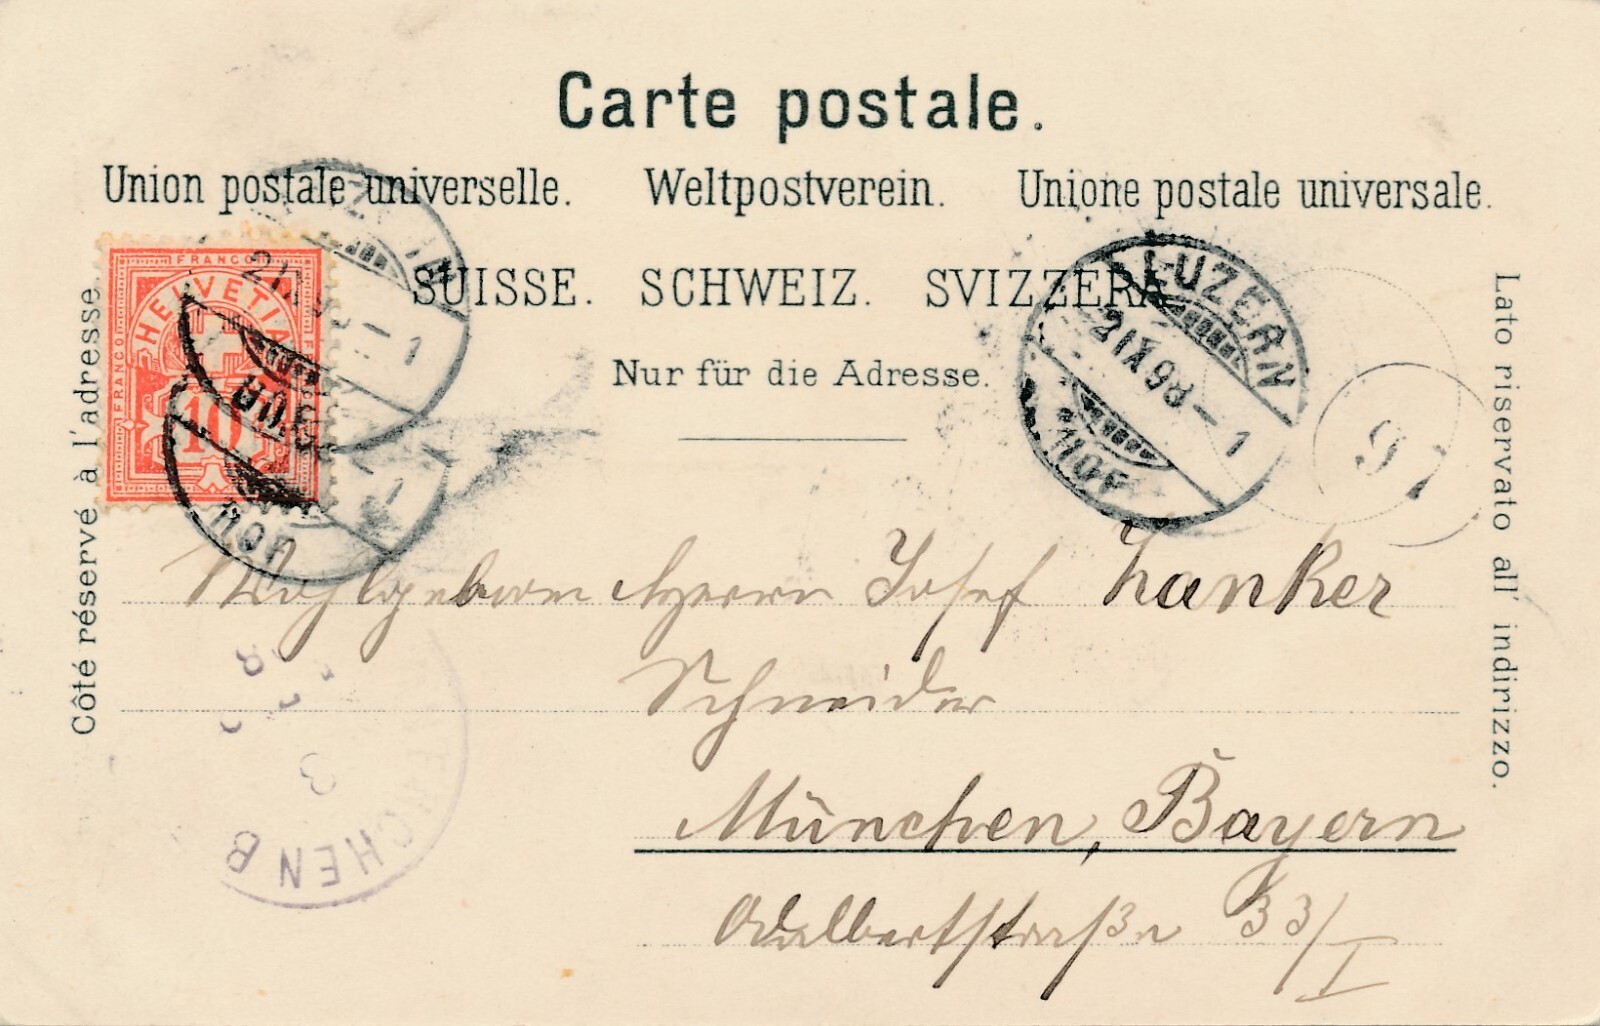 Carte postale.
Union postale universelle. Weltpostverein. Unione postale universale.
SUISSE. SCHWEIZ. SVIZZERA.
Nur für die Adresse.
Côté réservé à l'adresse.
Lato riservato all' indirizzo.
FRANCO
FRANCO
HELVETIA
10
LUZERN
2 IX 98 – 1
HOF
9
Wohlgeboren Herrn Josef Lanker
Schneider
München, Bayern
Adalbertstraße 33/I
CHEN B
3